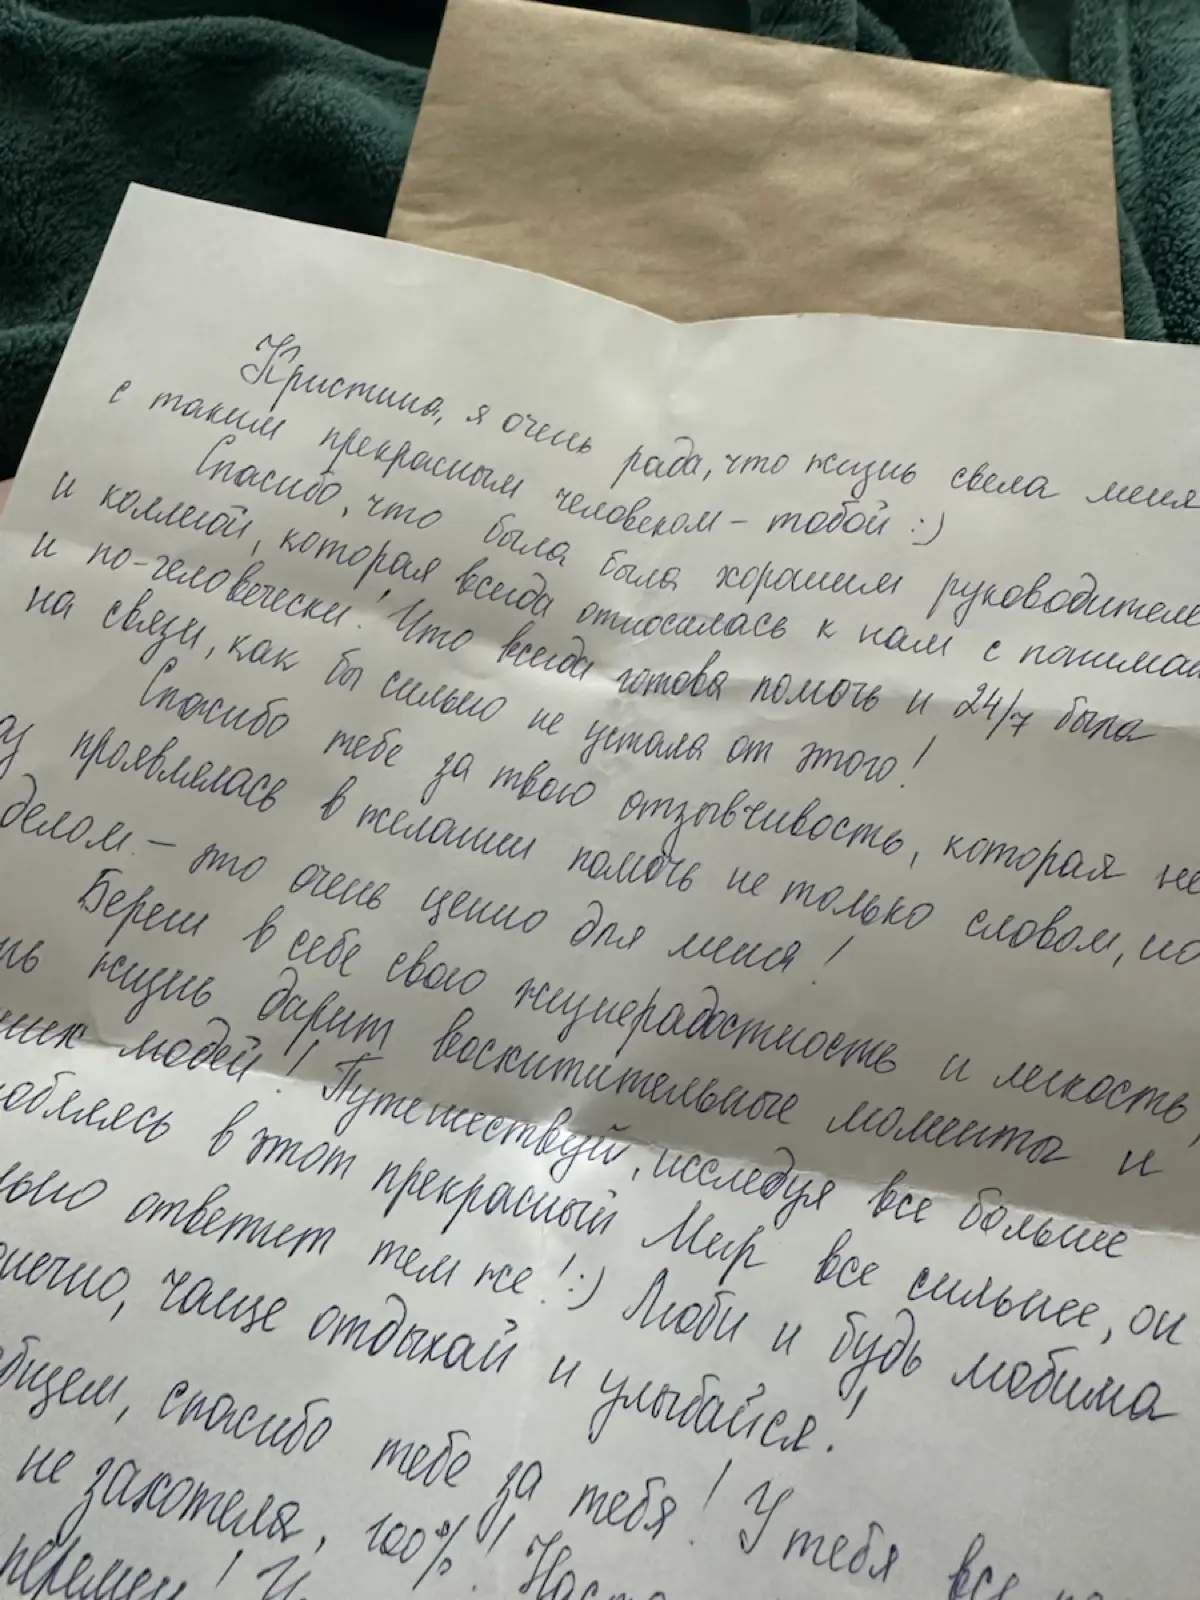 Кристина, я очень рада, что жизнь свела меня
с таким прекрасным человеком – тобой :)
Спасибо, что была была хорошим руководителе
и коллегой, которая всегда относилась к нам с понимани
и по-человечески! Что всегда готова помочь и 24/7 была
на связи, как бы сильно не устала от этого!
Спасибо тебе за твою отзывчивость, которая не
проявлялась в желании помочь не только словом, но
делом – это очень ценно для меня!
Береги в себе свою жизнерадостность и легкость,
ть жизнь дарит восхитительные моменты и
людей! Путешествуй, исследуя все больше
юбляясь в этот прекрасный Мир все сильнее, он
льно ответит тем же! :) Люби и будь любима
нечно, чаще отдыхай и улыбайся!
общем, спасибо тебе за тебя! У тебя все
не захотела, 100%!
перемен!